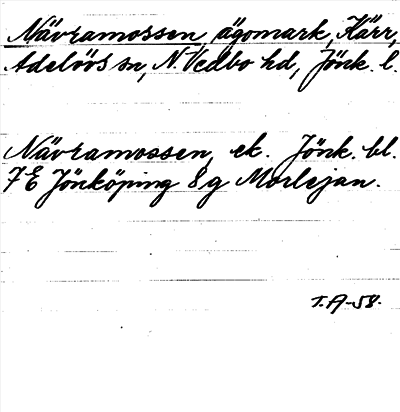 Nävramossen, ägomark, Kärr,
Adelövs sn, N. Vedbo hd, Jönk. l.
Nävramossen, ek. Jönk. bl.
7E Jönköping 8g Morlejan.
T.A-58.